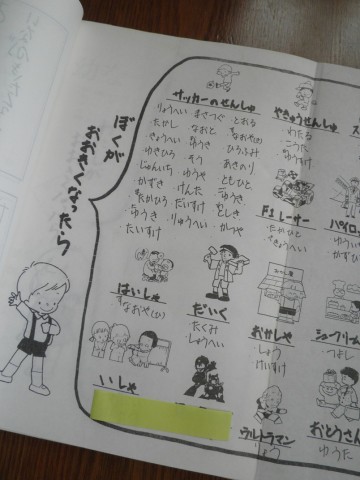 ぼくが
おおきくなったら
サッカーのせんしゅ
りょうへい まさつぐ とおる
たかし なおと なおや(の)
きょうへい ゆうき ひろふみ
ゆきひろ そう あきのり
じゅんいち ゆうや ともひと
かずき けんた こうき
たかひろ だいすけ としき
ゆうき りゅうへい かつや
たいすけ
やきゅうせんしゅ
わたる
こうた
ゆうすけ
F1レーサー
たかひと
きょうへい
パイロッ
ゆうい
かずひ
はいしゃ
なおや(ひ)
だいく
たくみ
しょうへい
おかしや
しょう
けいすけ
シュークリーム
つよし
いしゃ
ウルトラマン
りょう
おとうさん
ゆうた